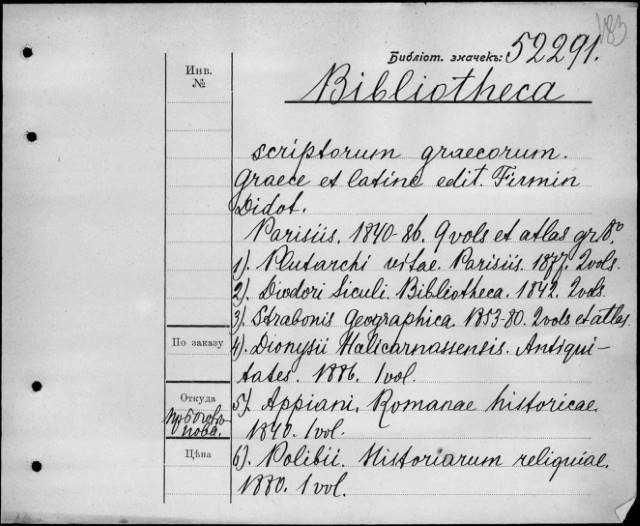 183
Библіот. значекъ: 52291.
Инв.
№
Bibliotheca
scriptorum graecorum.
Graece et latine edit. Firmin
Didot.
Parisiis. 1840-86. 9 vols et atlas gr. 8º
1). Plutarchi vitae. Parisiis. 1877. 2 vols.
2). Diodori Siculi. Bibliotheca. 1842. 2 vols.
3). Strabonis geographica. 1853-80. 2 vols et atlas.
По заказу
4). Dionysii Halicarnassensis. Antiqui-
tates. 1886. 1 vol.
Откуда
5). Appiani. Romanae historicae.
1840. 1 vol.
Цѣна
6). Polibii. Historiarum reliquiae.
1880. 1 vol.